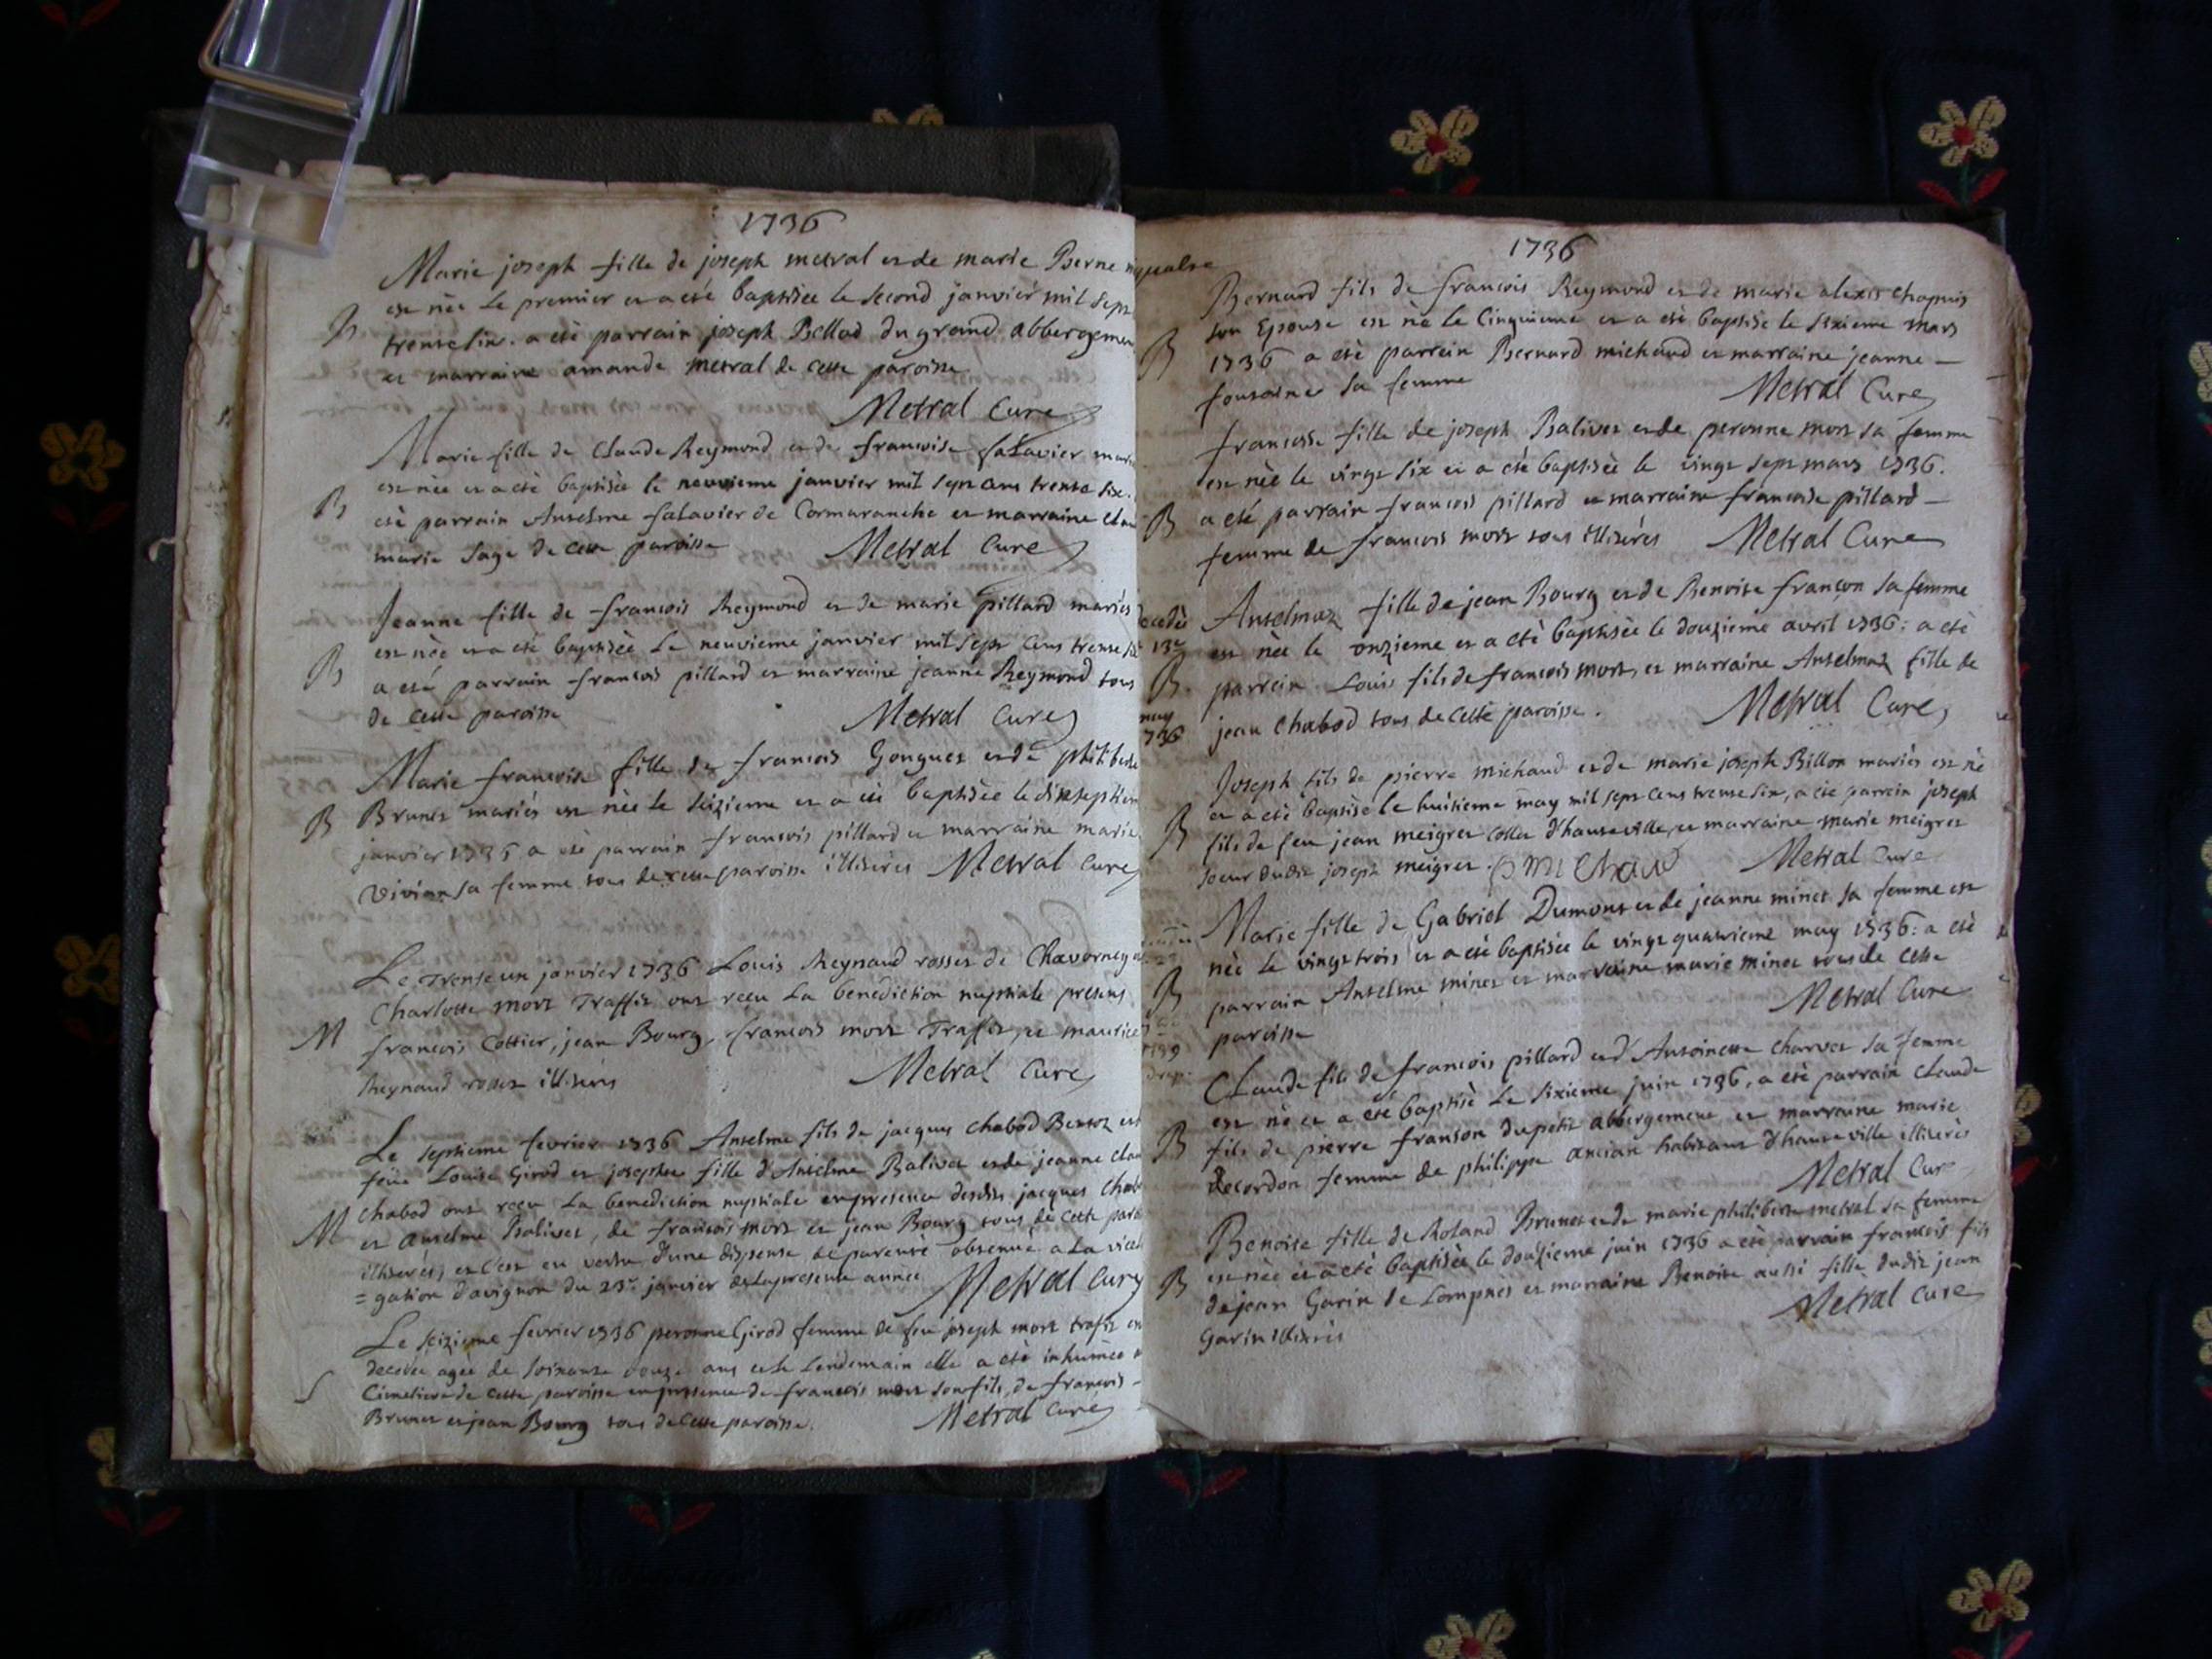 1736
Marie joseph fille de joseph metral et de marie Berne
est née le premier et a eté baptisée le second janvier mil sept
trente six. a eté parrain joseph Bellod du grand abbergemen
et marraine amande metral de cette paroisse
Metral Curé
B
Marie fille de Claude Reymond et de francoise falavier mari
est née et a eté baptisée le neuvieme janvier mil sept cens trente six.
B
eté parrain Anselme falavier de Cormaranche et marraine Clau
marie Sage de cette paroisse Metral Curé
Jeanne fille de francois Reymond et de marie pillard mariés
est née et a eté baptisée Le neuvieme janvier mil sept cens trente six
B
a eté parrain francois pillard et marraine jeanne Reymond tous
de cette paroisse Metral Curé
Marie francoise fille de francois Gonguet et de philiberte
B
Brunet mariés est née le seizieme et a eté baptisée le dixseptiem
janvier 1736 a eté parrain francois pillard et marraine marie
vivian sa femme tous de cette paroisse illiterés Metral Curé
Le Trente un janvier 1736 Louis Reynaud rosset de Chavorney et
Charlotte mort Traffit ont recu La benediction nuptiale presens
M
francois Cottier, jean Bourg, francois mort Traffit, et maurice
Reynaud rosset illiterés Metral Curé
Le septieme fevrier 1736 Anselme fils de jacques chabod Bertoz et
feüe Louise Girod et josephte fille d'Anselme Balivet et de jeanne clau
chabod ont recu La benediction nuptiale en presence desdits jacques chab
M
et anselme Balivet, de francois mort et jean Bourg tous de cette paro
illiterés, et c'est en vertu d'une dispense de parenté obtenuë a La vicel
= gation d'avignon du 23e janvier de la presente année Metral Curé
Le seizieme fevrier 1736 peronne Girod femme de feu joseph mort trafit est
decedée agée de soixante douze ans et le lendemain elle a eté inhumée
S
Cimetiere de cette paroisse en presence de francois mort son fils, de francois
Brunet et jean Bourg tous de cette paroisse. Metral Curé
1736
Bernard fils de francois Reymond et de marie alexis chapuis
son Epouse est né le Cinquieme et a eté baptisé le sixieme mars
B
1736 a eté parrein Bernard michaud et marraine jeanne
fontaine sa femme Metral Curé
francoise fille de joseph Balivet et de peronne mort sa femme
est née le vingt six et a eté baptisée le vingt sept mars 1736.
B
a eté parrain francois pillard et marraine francoise pillard
femme de francois mort tous illiterés Metral Curé
Anselmaz fille de jean Bourg et de Benoite françon sa femme
13e
est née le onzieme et a eté baptisée le douzieme avril 1736: a eté
B
parrein Louis fils de francois mort, et marraine Anselmaz fille de
may
736
jean chabod tous de cette paroisse. Metral Curé
Joseph fils de pierre michaud et de marie joseph Billon mariés est né
et a eté baptisé le huitieme may mil sept cens trente six, a eté parrein joseph
B
fils de feu jean meigret collet d'hauteville, et marraine marie meigret
soeur dudit joseph meigret. p michaud Metral Curé
Marie fille de Gabriel Dumont et de jeanne minet sa femme est
née le vingt trois et a eté baptisée le vingt quatrieme may 1736: a eté
B
parrain Anselme minet et marraine marie minet tous de cette
paroisse Metral Curé
Claude fils de francois pillard et d'Antoinette charvet sa femme
est né et a eté baptisé Le sixieme juin 1736, a eté parrain claude
B
fils de pierre franson du petit abbergement et marraine marie
decordon femme de philippe ancian habitant d'hauteville illiterés
Metral Curé
Benoite fille de Roland Brunet et de marie philiberte metral sa femme
est née et a eté baptisée le douzieme juin 1736 a eté parrain francois fils
B
de jean Garin de Lompnes et marraine Benoite aussi fille dudit jean
Garin illiterés Metral Curé